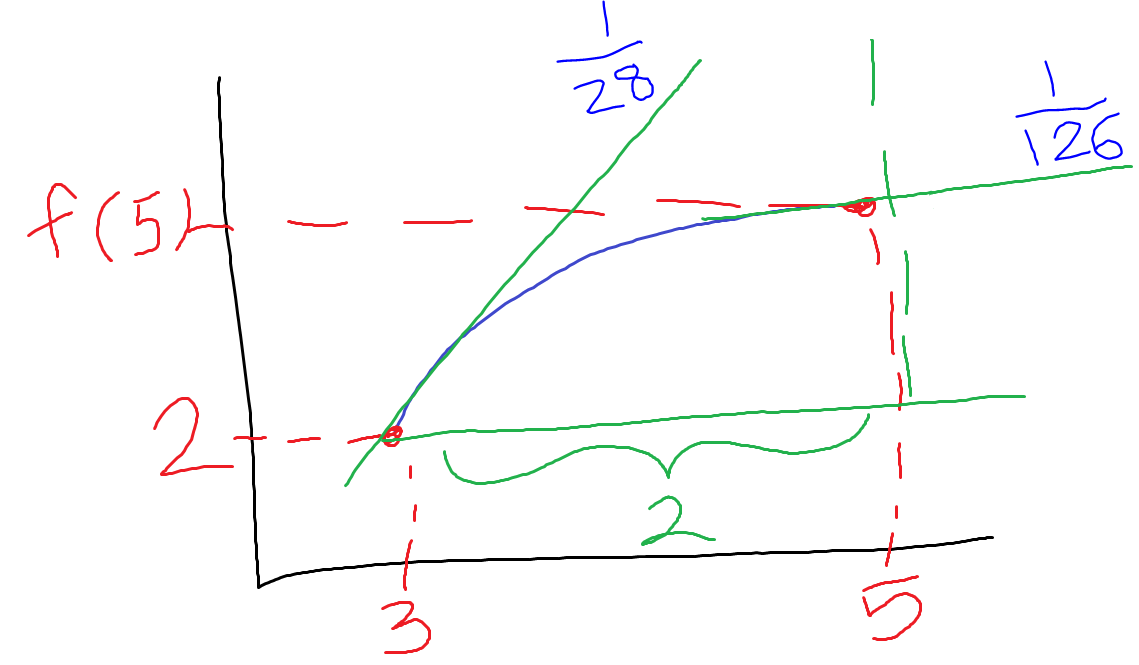 1
28
1
126
f(5)
2
2
3
5